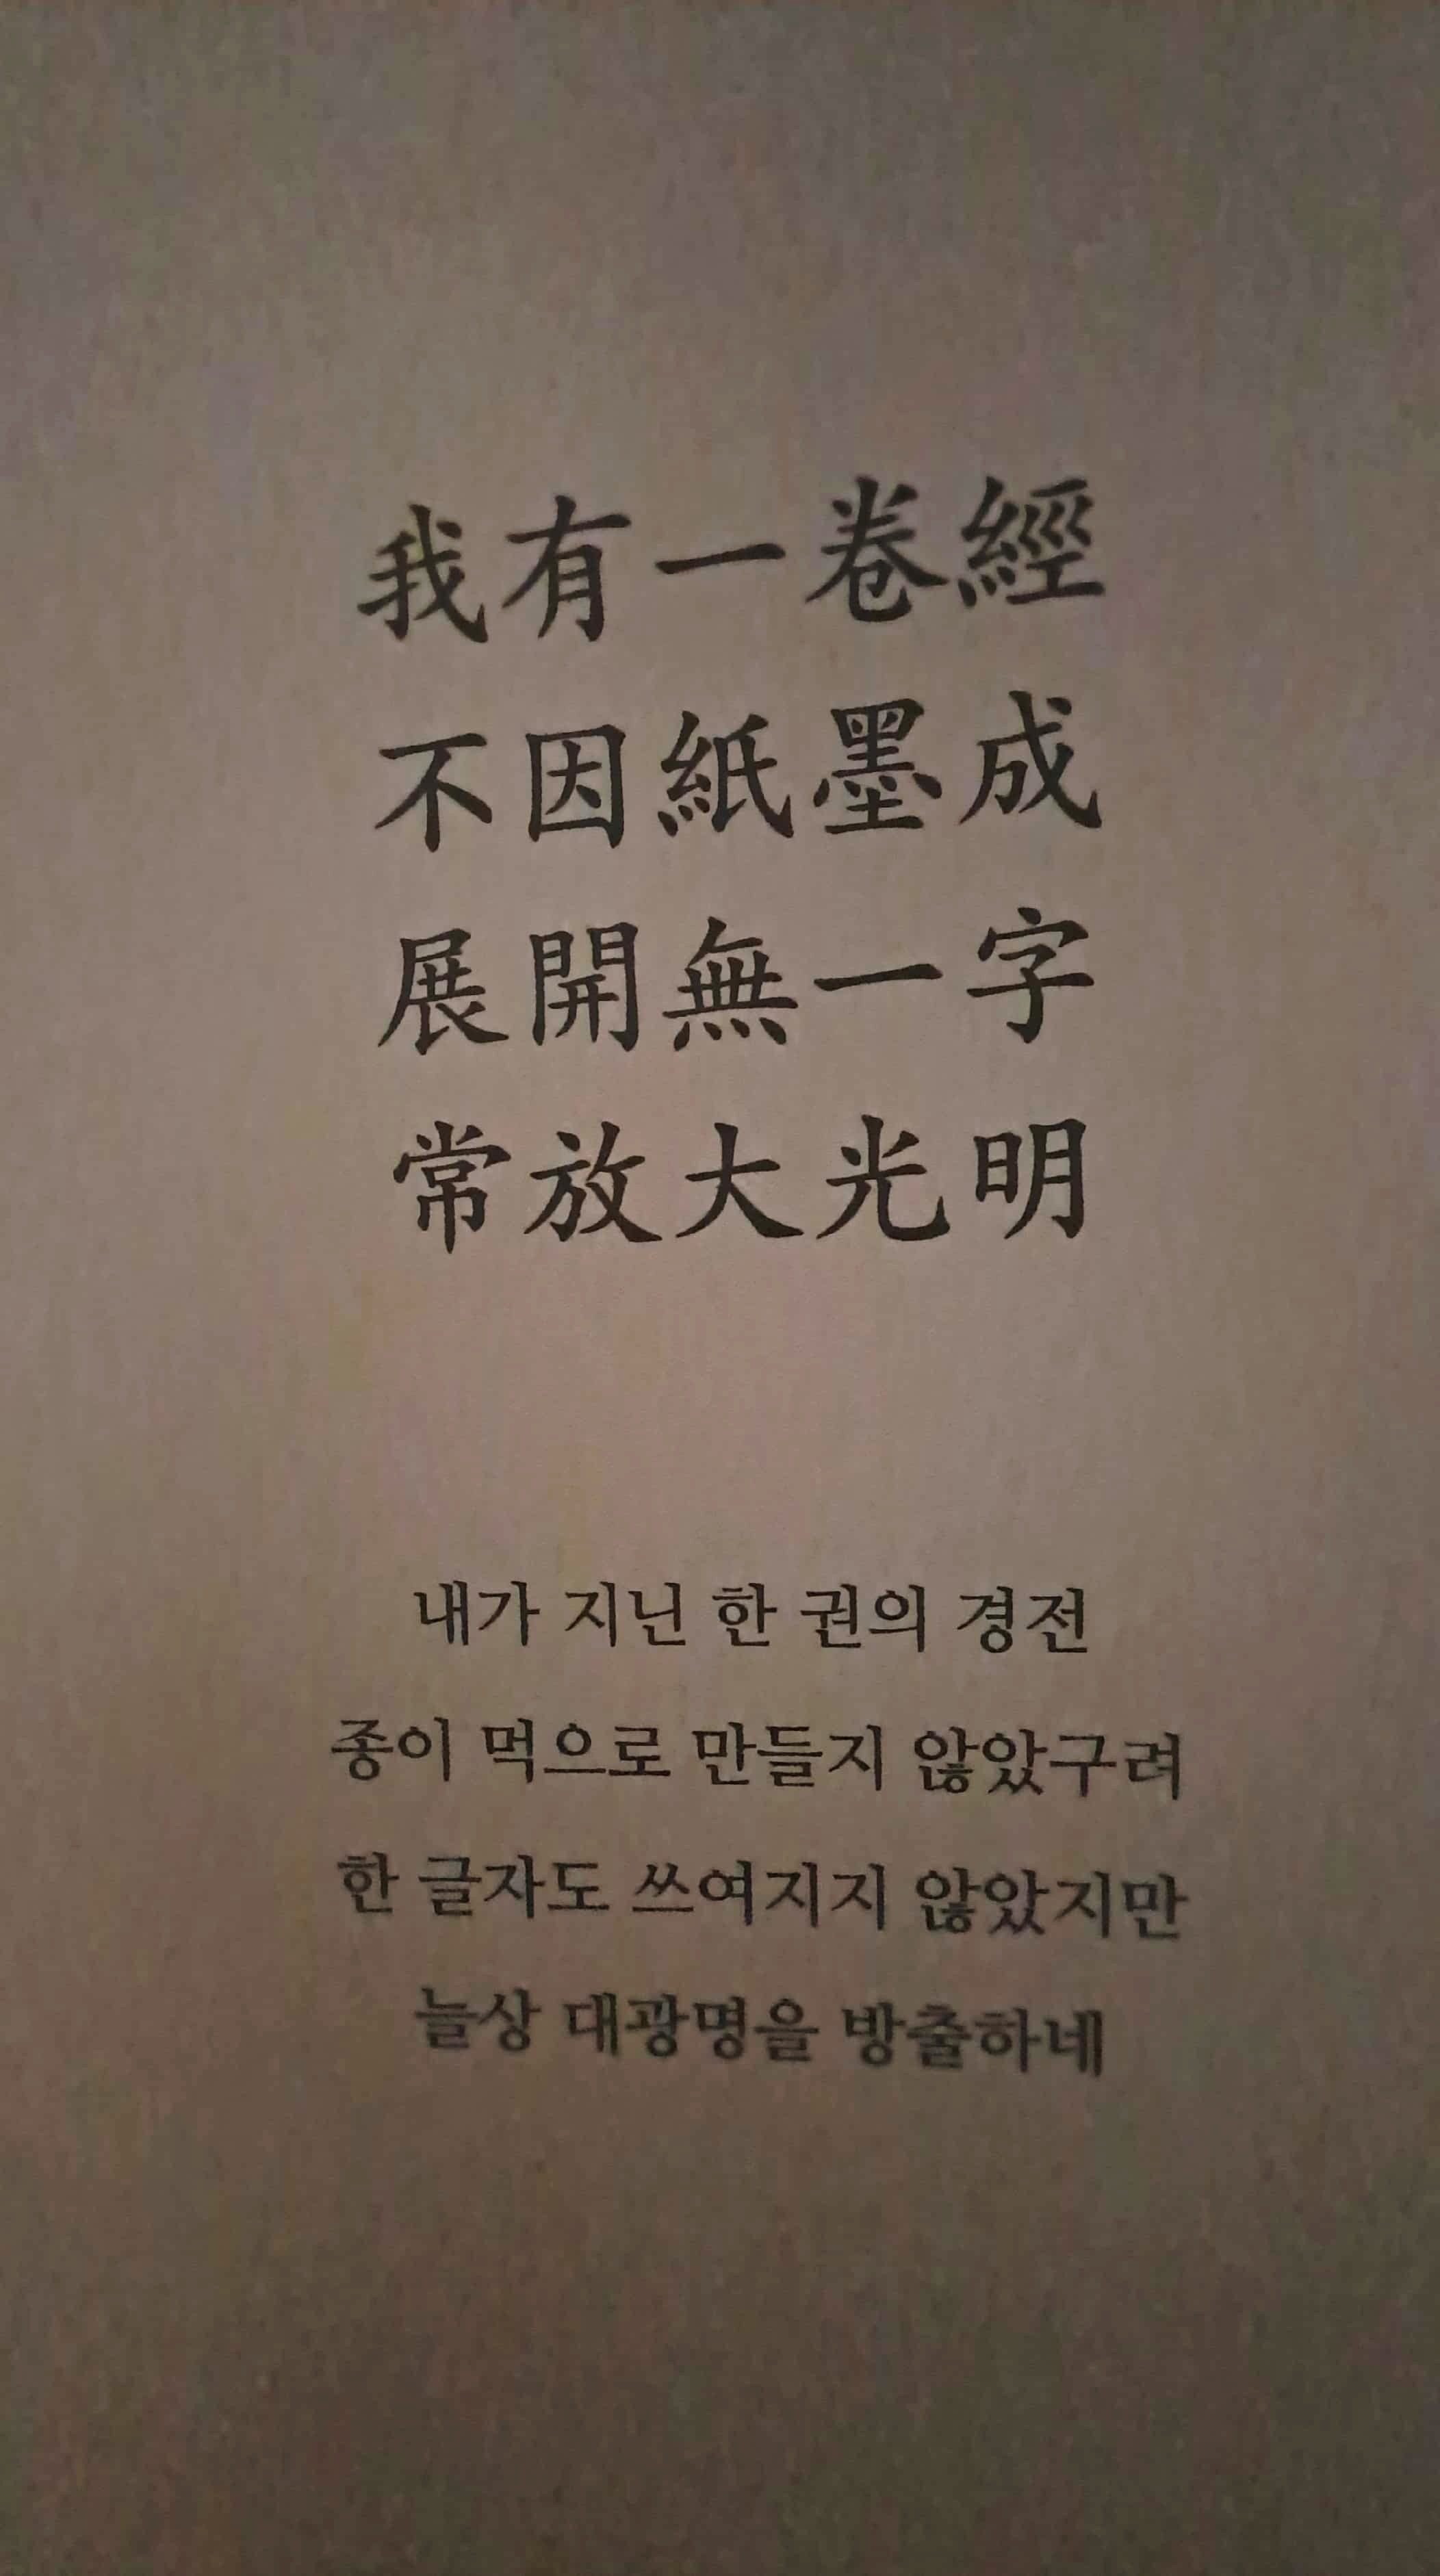 我有一卷經
不因紙墨成
展開無一字
常放大光明
내가 지닌 한 권의 경전
종이 먹으로 만들지 않았구려
한 글자도 쓰여지지 않았지만
늘상 대광명을 방출하네